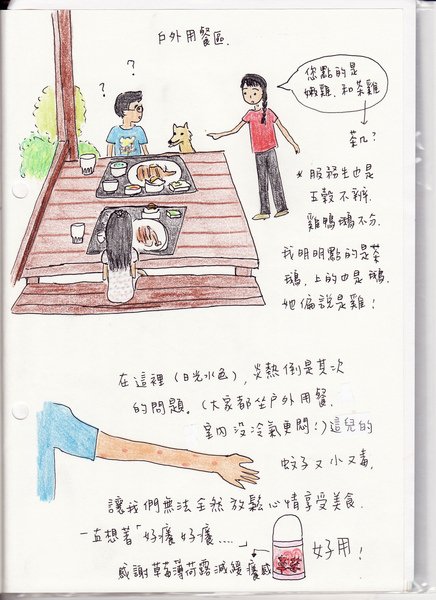 戶外用餐區.
? ?
您點的是
嫩雞.和茶雞
茶几?
* 服務生也是
五穀不辨.
雞鴨鵝不分.
我明明點的是茶
鵝,上的也是鵝.
她偏說是雞!
在這裡(日光水色),炎熱倒是其次
的問題。(大家都坐戶外用餐.
室內沒冷氣更悶!)這兒的
蚊子又小又毒.
讓我們無法全然放鬆心情享受美食.
一直想著「好癢好癢....」
好用!
感謝草莓薄荷露減緩癢感